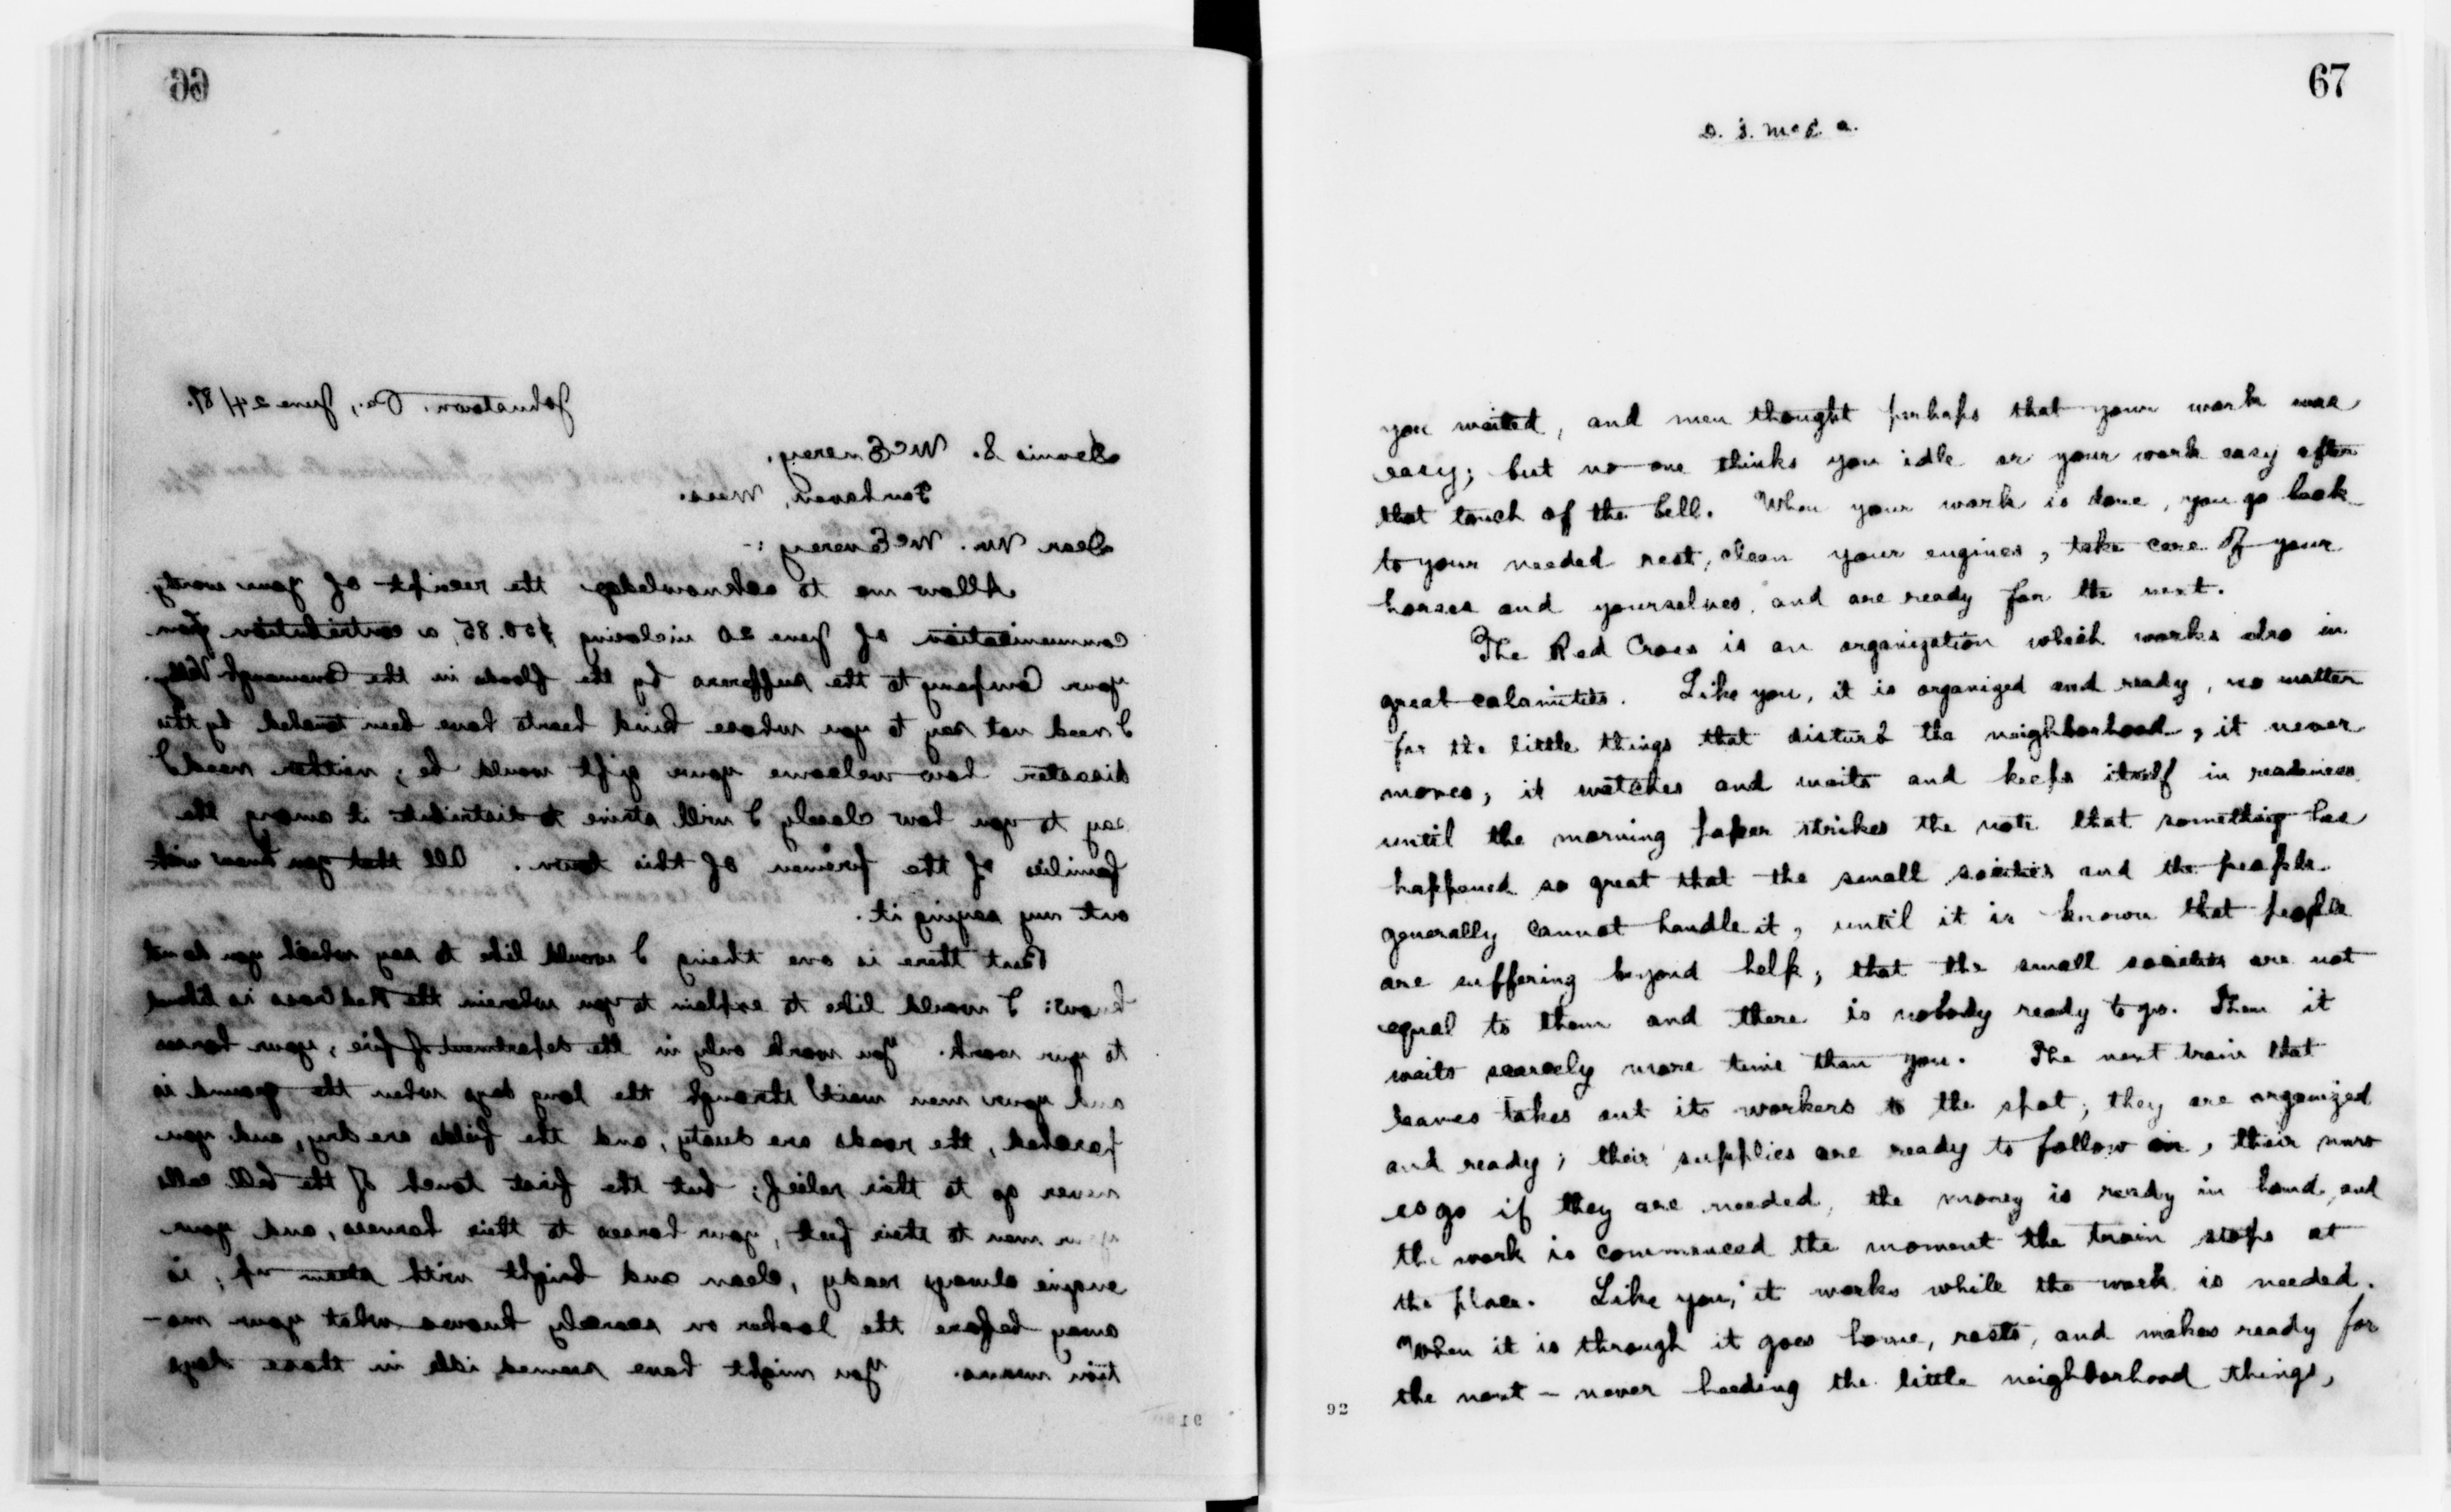 66
Johnstown, Pa., June 24/89.
Dennis S. McEnerey,
Fairhaven, Mass.
Dear Mr. McEnerey :-
Allow me to acknowledge the receipt of your worthy
communication of June 20 inclosing $50.85, a contribution from
your Company to the sufferers by the floods in the Conemaugh Valley.
I need not say to you whose kind hearts have been touched by this
disaster how welcome your gift would be; neither need I
say to you how closely I will strive to distribute it among the
families of the firemen of this town. All that you know with-
out my saying it.
But there is one thing I would like to say which you do not
know: I would like to explain to you wherein the Red Cross is akin
to your work. You work only in the department of fire; your horses
and your men wait through the long days when the ground is
parched, the roads are dusty, and the fields are dry, and you
never go to their relief; but the first touch of the bell calls
your men to their feet, your horses to their harness, and your
engine always ready, clean and bright with steam up, is
away before the looker on scarcely knows what your mo-
tion means. You might have seemed idle in those days
91
67
D. S. McE. 2.
you waited, and men thought perhaps that your work was
easy; but no one thinks you idle or your work easy after
that touch of the bell. When your work is done, you go back
to your needed rest, clean your engines, take care of your
horses and yourselves, and are ready for the next.
The Red Cross is an organization which works also in
great calamities. Like you, it is organized and ready, no matter
for the little things that disturb the neighborhood, it never
moves; it watches and waits and keeps itself in readiness
until the morning paper strikes the note that something has
happened so great that the small societies and the people
generally cannot handle it, until it is known that people
are suffering beyond help; that the small societies are not
equal to them and there is nobody ready to go. Then it
waits scarcely more time than you. The next train that
leaves takes out its workers to the spot; they are organized
and ready; their supplies are ready to follow on, their nurs
es go if they are needed, the money is ready in hand, and
the work is commenced the moment the train stops at
the place. Like you, it works while the work is needed.
When it is through it goes home, rests, and makes ready for
the next - never heeding the little neighborhood things,
92